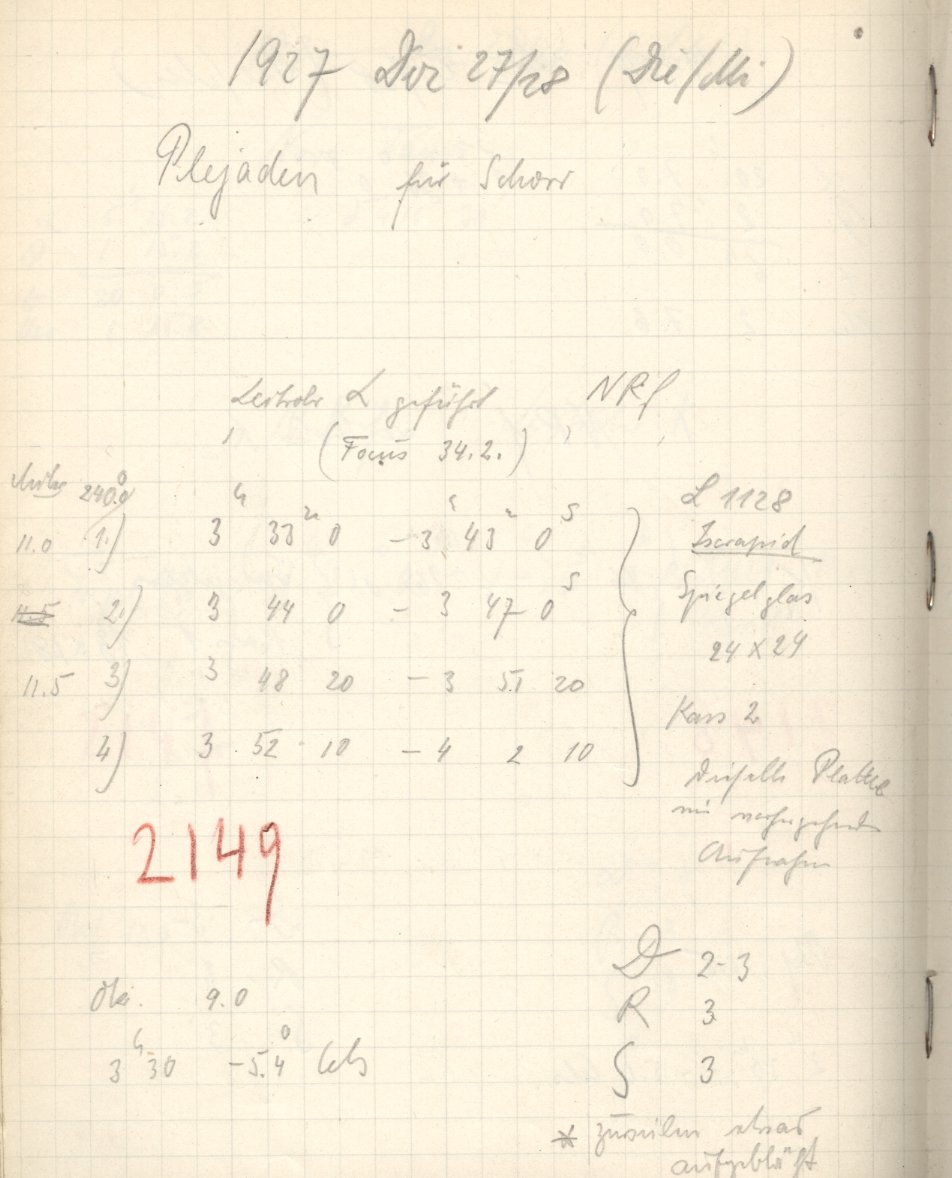 1927 Dez 27/28 (Die/Mi)
Plejaden für Schorr
Leitrohr L geführt NRf
(Focus 34.2.)
240.0
11.0 1.) 3h 33m 0 - 3h 43m 0s
2.) 3 44 0 - 3 47 0s
11.5 3) 3 48 20 - 3 51 20
4) 3 52 10 - 4 2 10
L 1128
Isorapid
Spiegelglas
24 x 24
Kass 2
Dieselbe Platte
wie vorhergehende
Aufnahme
2149
D 2-3
R 3
S 3
Ok. 9.0
3h 30 -5.4° Cels
* zuweilen etwas
aufgebläht